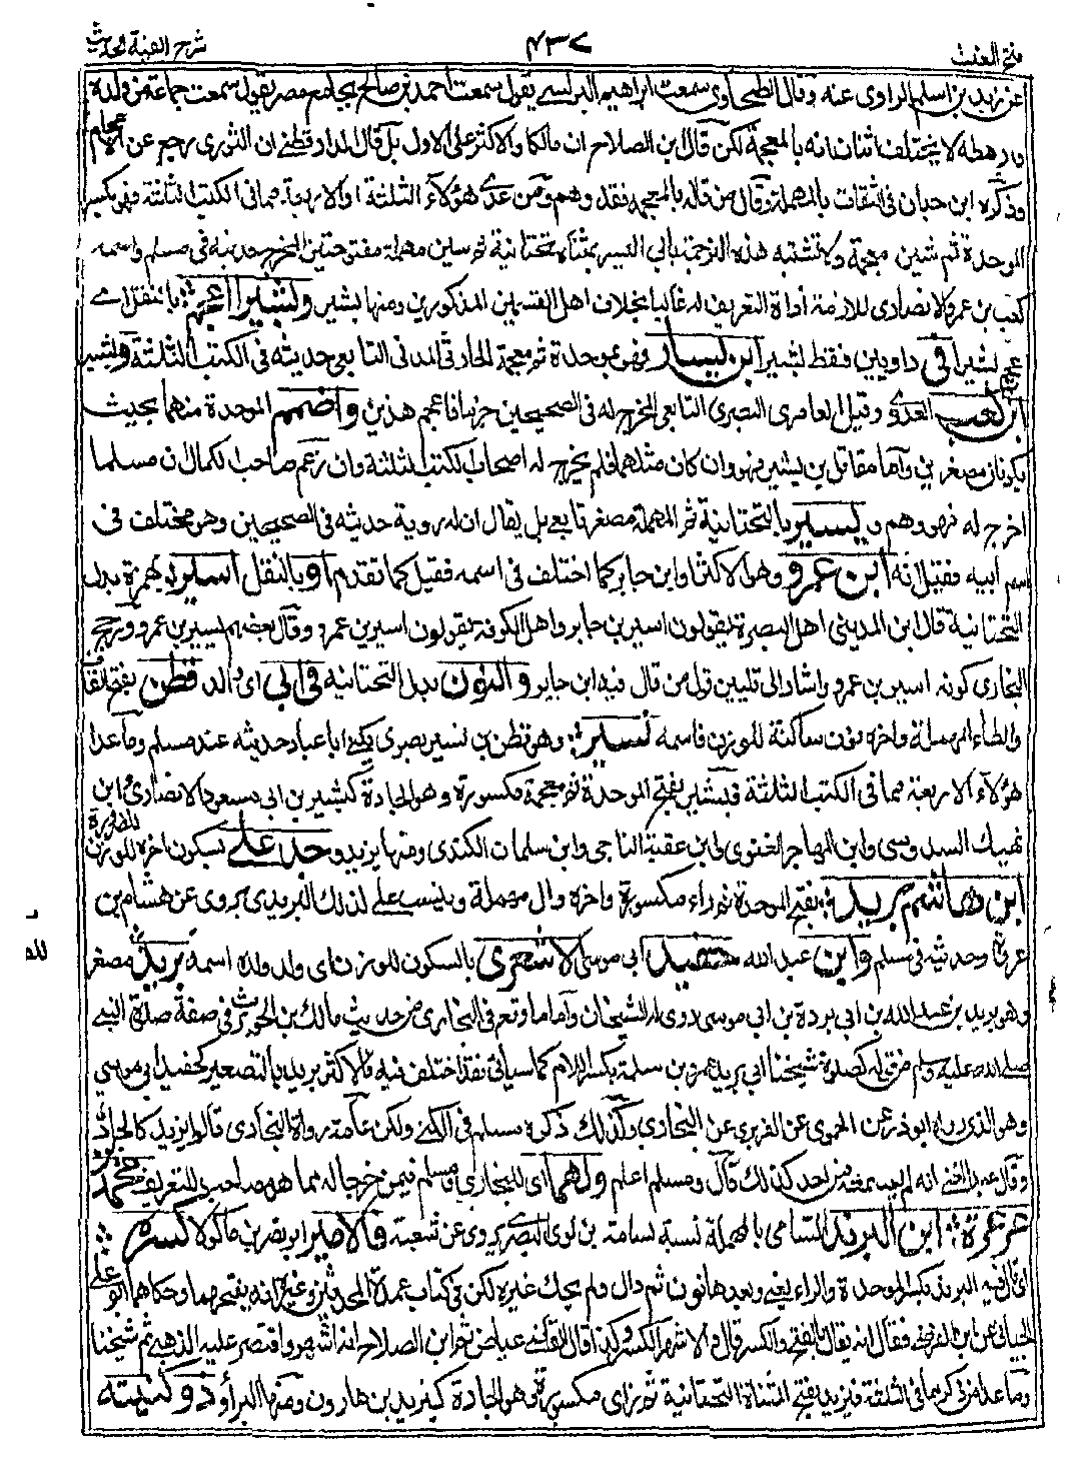 فتح المغيث ٤٣٧ شرح الفية الحديث
عن زيد بن اسلم الراوي عنه وقال الطحاوي سمعت ابراهيم البرلسي يقول سمعت احمد بن صالح بجامع مصر يقول سمعت جماعة من ولده
ورهطه لا يختلف اثنان انه بالمعجمة لكن قال ابن الصلاح ان مالكا والاكثر على الاول بل قال الدارقطني ان الثوري رجع عن الاعجام
وذكره ابن حبان في الثقات بالمهملة وقال من قاله بالمعجمة فقد وهم ومن عدى هؤلآء الثلثة او الاربعة مما في الكتب الثلثة فهو بكسر
الموحدة ثم شين معجمة ولا تشتبه هذه الترجمة بابي اليسر بمثناة تحتانية ثم سين مهملة مفتوحتين المخرج حديثه في مسلم واسمه
كعب بن عمرو الانصاري لملازمة اداة التعريف له غالبا بخلاف اهل القسمين المذكورين ومنها بشير وبشيرا اعجم بالنقل اي
عجم بشيرا في راويين فقط بشير ابن يسار فهو بموحدة ثم معجمة الحارثي المدني التابعي حديثه في الكتب الثلثة وبشير
ابن كعب العدوي وقيل العامري البصري التابعي المخرج له في الصحيحين حزما فاعجم هذين واضمم الموحدة منهما بحيث
يكونان مصغرين وآما مقاتل بن بشير فهو وان كان مثلهما فلم يخرج له اصحاب الكتب الثلثة وان زعم صاحب الكمال ان مسلما
اخرج له فهو وهم و يسير بالتحتانية ثم المهملة مصغر تابعي بل يقال ان له روية حديثه في الصحيحين وهو مختلف في
اسم ابيه فقيل انه ابن عمرو وهو الاكثر او ابن جابر كما اختلف في اسمه فقيل كما تقدم او بالنقل اسير بهمزة بدل
التحتانية قال ابن المديني اهل البصرة يقولون اسير بن جابر واهل الكوفة يقولون اسير بن عمرو وقال بعضهم يسير بن عمرو ورجح
البخاري كونه اسير بن عمرو واشار الى تليين قول من قال فيه ابن جابر والنون بدل التحتانيه في ابي اي والد قطن بفتح القاف
والطاء المهملة واخره نون ساكنة للوزن فاسمه نسير وهو قطن بن نسير بصري يكنى ابا عباد حديثه عند مسلم وما عدا
هؤلآء الاربعة مما في الكتب الثلثة فبشير بفتح الموحدة ثم معجمة مكسورة وهو الجادة كبشير بن ابي مسعود الانصاري وابن
نهيك السدوسي وابن المهاجر الغنوي وابن عقبة الناجي وابن سلمان الكندي ومنها يزيد و جد علي بسكون اخره للوزن للضرورة
ابن هاشم بريد بفتح الموحدة ثم راء مكسورة واخره دال مهملة وينسب علي لذلك البريدي يروي عن هشام بن
عروة وحديثه في مسلم وابن عبد الله حفيد ابي موسى الاشعري بالسكون للوزن اي ولد ولده اسمه بريد مصغر
وهو بريد بن عبد الله بن ابي بردة بن ابي موسى روى له الشيخان وآما ما وقع في البخاري من حديث مالك بن الحويرث في صفة صلاة النبي
صلى الله عليه وسلم من قوله كصلوة شيخنا ابي بريد عمرو بن سلمة بكسر اللام كما سياتي فقد اختلف فيه فالاكثر بريد بالتصغير كحفيد ابي موسى
وهو الذي رواه ابو ذر عن الحموي عن الفربري عن البخاري وكذلك ذكره مسلم في الكنى ولكن عامة رواة البخاري قالوا يزيد كالجادة
وقال عبد الغني انه لم يسمعه من احد كذلك قال ومسلم اعلم ولهما اي للبخاري ومسلم فيمن خرجا له مما هو صاحب للتعريف محمد
بن عرعرة ابن البرند السامي بالمهملة نسبة لسامة بن لوي البصري يروي عن شعبة فالامير ابو نصر بن ماكولا كسره
اي قال فيه البرند بكسر الموحدة والراء يعني وبعدها نون ثم دال ولم يحك غيره لكن في كتاب عمدة المحدثين وغيره انه بفتحهما وحكاهما ابو علي
الجياني عن ابن الفرضي فقال انه يقال بالفتح والكسر قال والاشهر الكسر وكذا قال القاضي عياض ثم ابن الصلاح انه اشهر واقتصر عليه الذهبي ثم شيخنا
وما عدا من ذكر مما في الثلثة فيزيد بفتح المثناة التحتانية ثم زاي مكسورة وهو الجادة كيزيد بن هارون ومنها البرآء و ذو كنيته